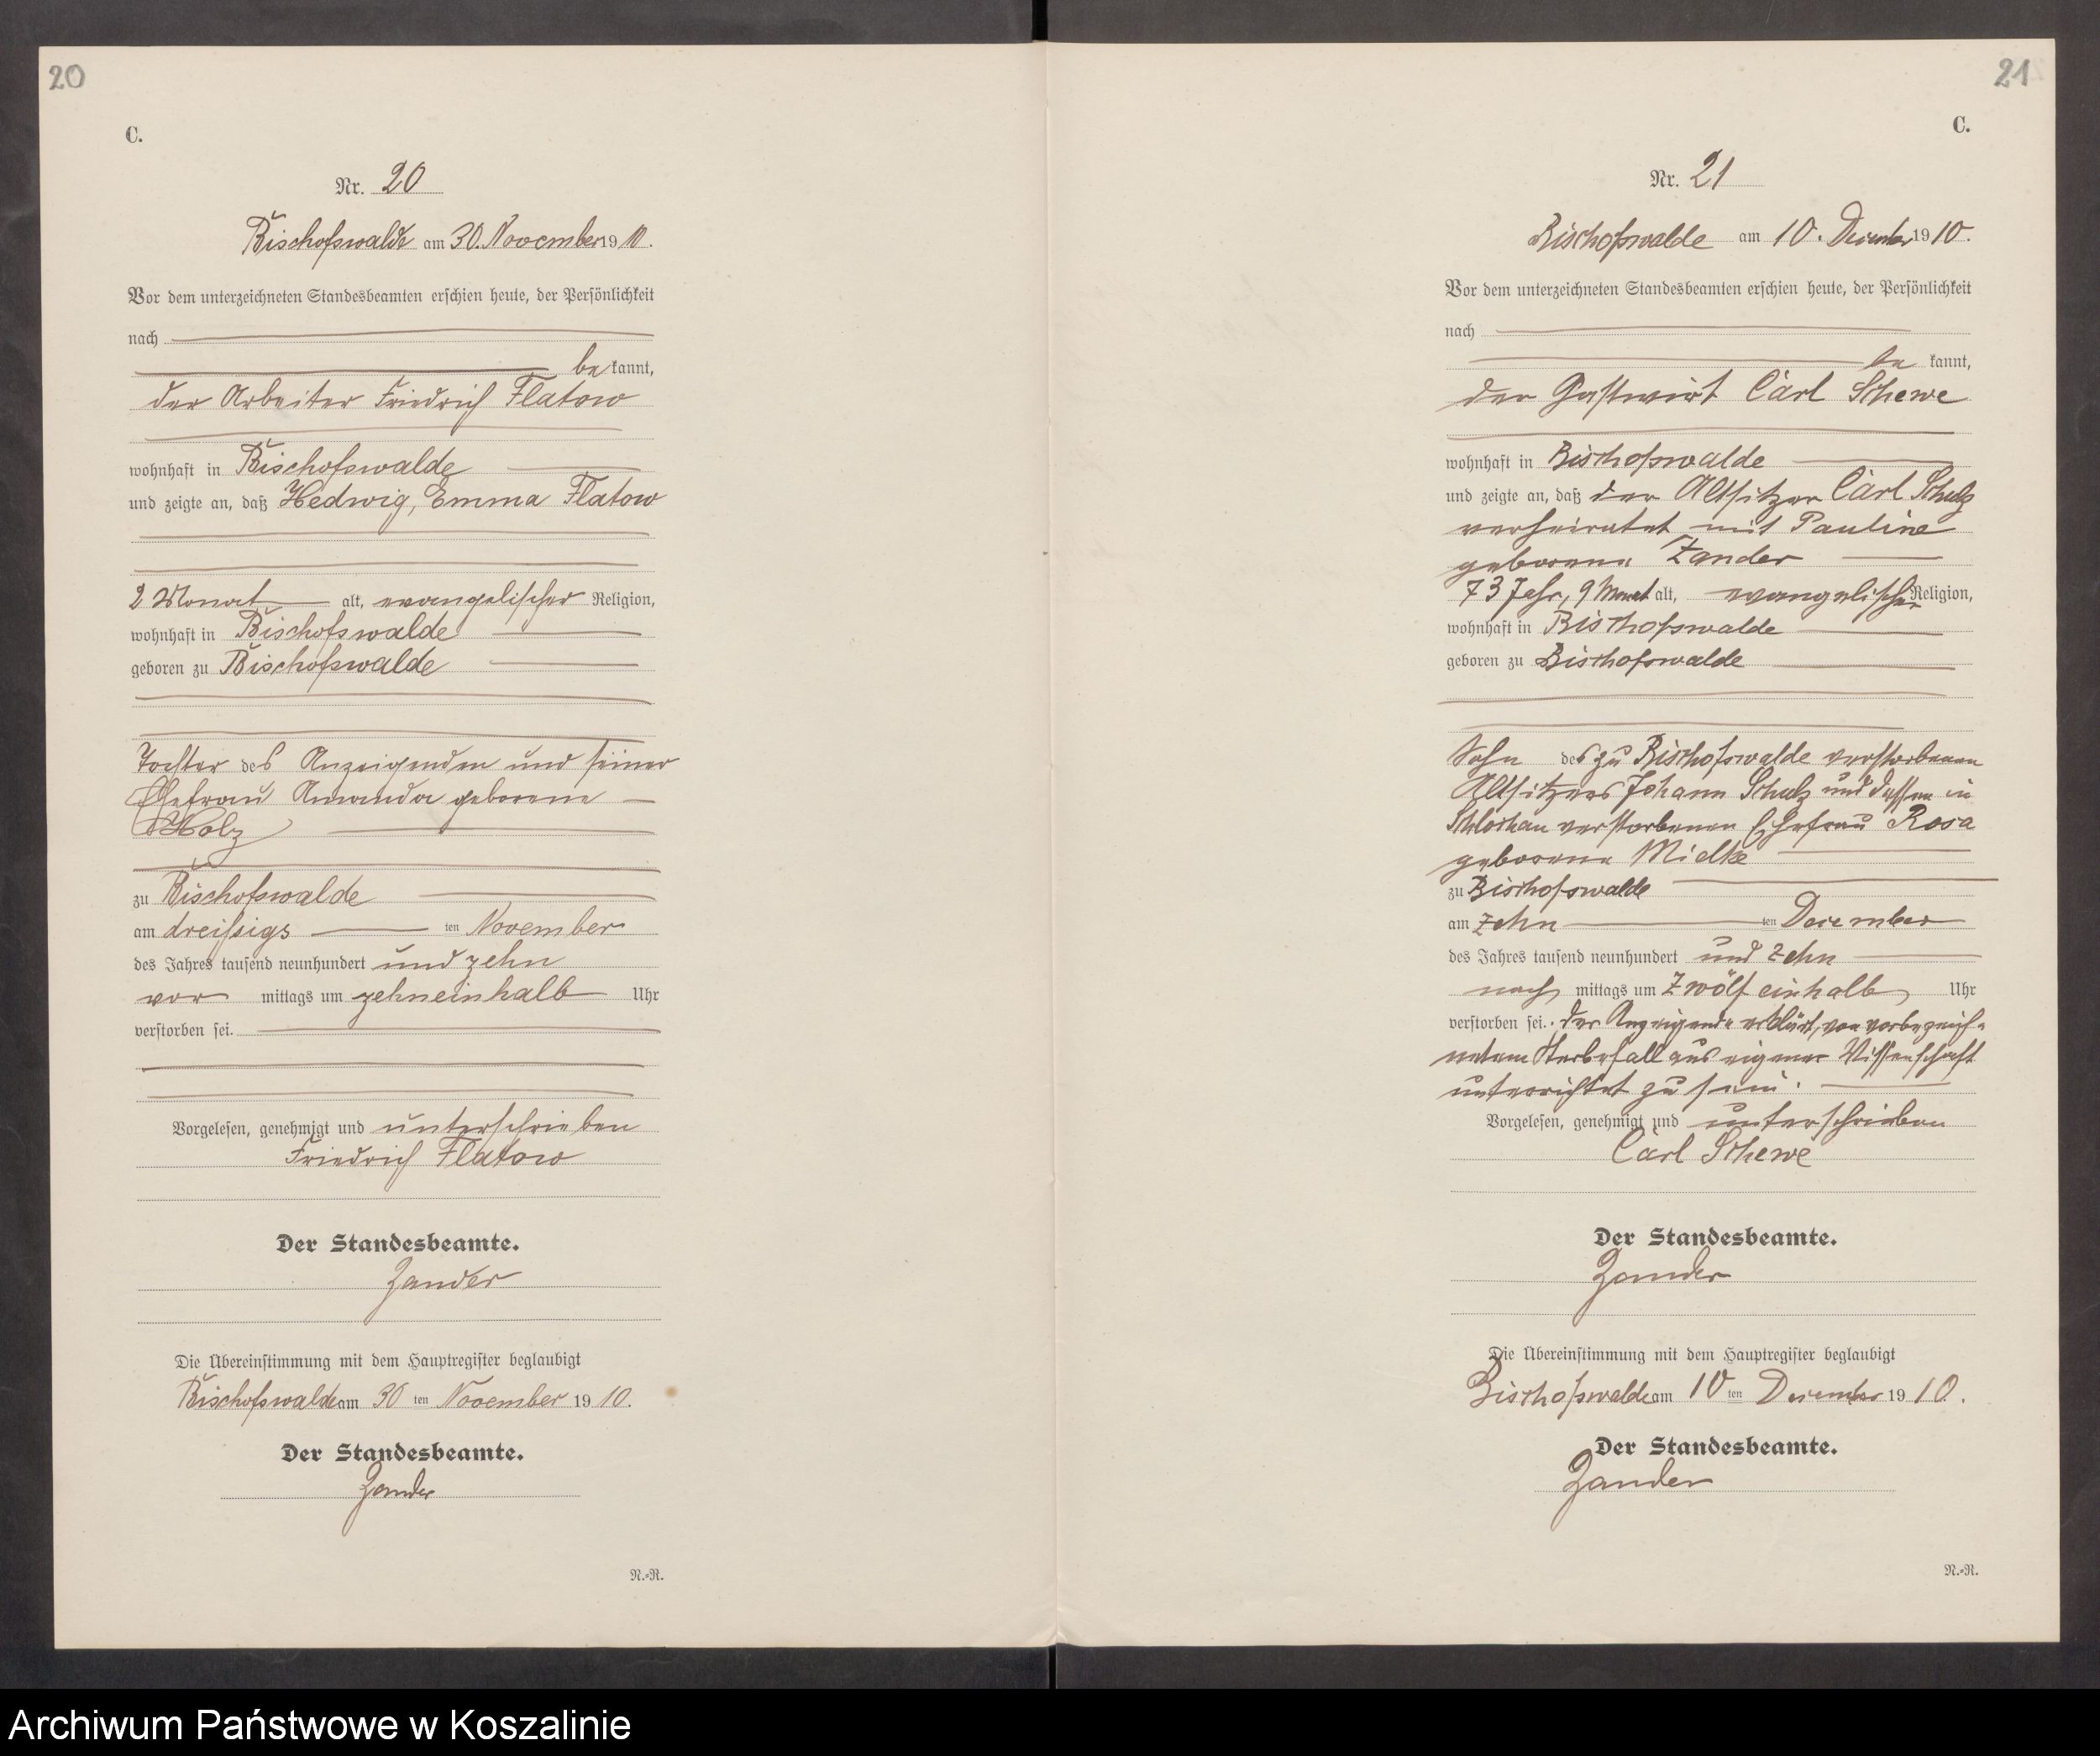 20
C.
Nr. 20
Bischofswalde am 30. November 1910.
Vor dem unterzeichneten Standesbeamten erschien heute, der Persönlichkeit
nach
be kannt,
der Arbeiter Friedrich Flatow
wohnhaft in Bischofswalde
und zeigte an, daß Hedwig, Emma Flatow
2 Monat alt, evangelischer Religion,
wohnhaft in Bischofswalde
geboren zu Bischofswalde
Tochter des Anzeigenden und seiner
Ehefrau Amanda geborene
Holz
zu Bischofswalde
am dreißigs ten November
des Jahres tausend neunhundert und zehn
vor mittags um zehneinhalb Uhr
verstorben sei.
Vorgelesen, genehmigt und unterschrieben
Friedrich Flatow
Der Standesbeamte.
Zander
Die Übereinstimmung mit dem Hauptregister beglaubigt
Bischofswalde am 30 ten November 1910.
Der Standesbeamte.
Zander
N.-R.
21
C.
Nr. 21
Bischofswalde am 10. Dezember 1910.
Vor dem unterzeichneten Standesbeamten erschien heute, der Persönlichkeit
nach
be kannt,
der Gastwirt Carl Schewe
wohnhaft in Bischofswalde
und zeigte an, daß der Altsitzer Carl Schulz
verheiratet mit Pauline
geborene Zander
73 Jahr, 9 Monat alt, evangelischer Religion,
wohnhaft in Bischofswalde
geboren zu Bischofswalde
Sohn des zu Bischofswalde verstorbenen
Altsitzers Johann Schulz und dessen in
Schlochau verstorbenen Ehefrau Rosa
geborene Mielke
zu Bischofswalde
am zehn ten Dezember
des Jahres tausend neunhundert und zehn
nach mittags um zwölf einhalb Uhr
verstorben sei. Der Anzeigende erklärt, von vorbezeich-
netem Sterbefall aus eigener Wissenschaft
unterrichtet zu sein.
Vorgelesen, genehmigt und unterschrieben
Carl Schewe
Der Standesbeamte.
Zander
Die Übereinstimmung mit dem Hauptregister beglaubigt
Bischofswalde am 10 ten Dezember 1910.
Der Standesbeamte.
Zander
N.-R.
Archiwum Państwowe w Koszalinie